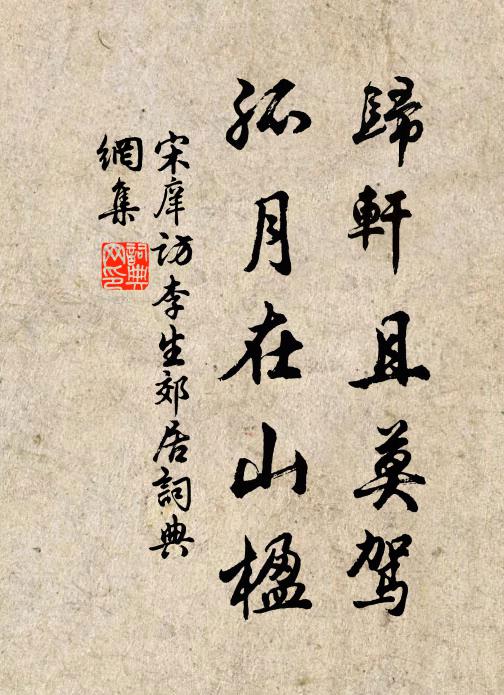 歸軒且莫驾
孤月在山楹
宋庠访李生郊居詞典
網集
詞典
网印